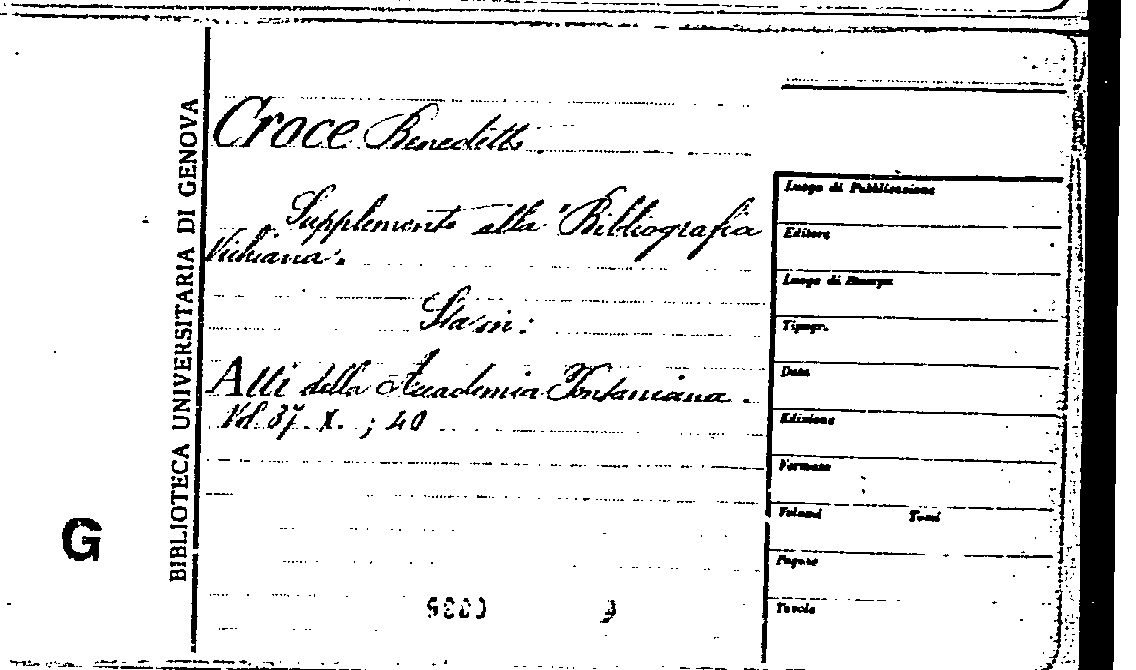 Croce Benedetto
Supplemento alla "Bibliografia
Vichiana".
Sta in:
Atti della Accademia Pontaniana.
Vol. 37. X. ; 40
BIBLIOTECA UNIVERSITARIA DI GENOVA
G
Luogo di Pubblicazione
Editore
Luogo di Stampa
Tipogr.
Data
Edizione
Formato
Volumi Tomi
Pagine
Tavole